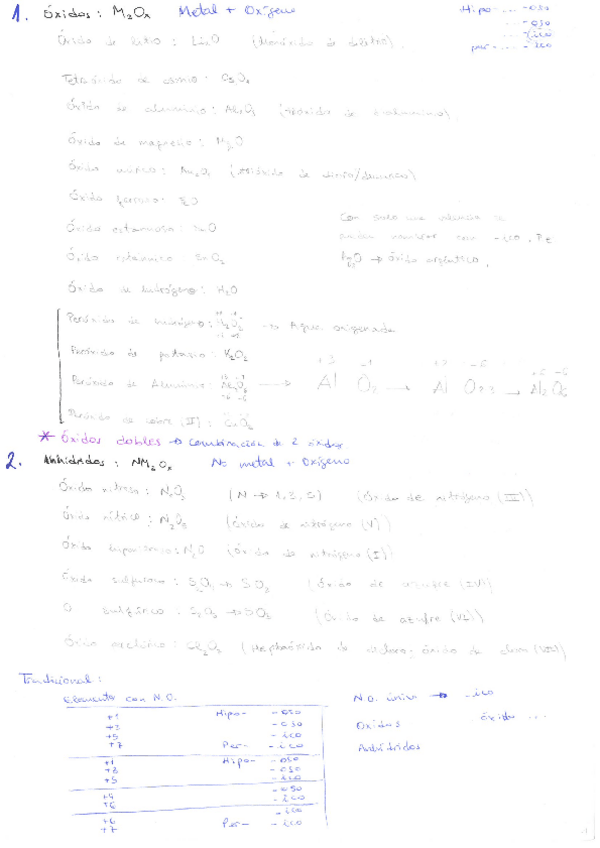 1. Óxidos : M₂Oₓ Metal + Oxígeno
Hipo- ... -oso
... -oso
... -ico
per- ... -ico
Óxido de litio : Li₂O (Monóxido de dilitio).
Tetraóxido de osmio : OsO₄
Óxido de aluminio : Al₂O₃ (trióxido de dialuminio).
Óxido de magnesio : MgO
Óxido aúrico : Au₂O₃ (trióxido de
Óxido ferroso : FeO
Óxido estannoso : SnO
Óxido estannico SnO₂
Con solo una valencia se
con -ico.
→ óxido argéntico.
Óxido de hidrógeno : H₂O
Peróxido de hidrógeno : H₂O₂ → Agua oxigenada
Peróxido de potasio : K₂O₂
Peróxido de Aluminio : Al₂O₆ → Al O₂ → Al O₂·₃ → Al₂O₆
Peróxido de cobre (II) : CuO₂
* Óxidos dobles → combinación de 2 óxidos
2. Anhídridos : NM₂Oₓ No metal + Oxígeno
Óxido nitroso : N₂O₃ (N → 1, 3, 5) (Óxido de nitrógeno (III))
Óxido nítrico : N₂O₅ (Óxido de nitrógeno (V))
Óxido hiponitroso : N₂O (Óxido de nitrógeno (I))
Óxido sulfuroso : S₂O₄ → SO₂ (Óxido de azufre (IV))
O sulfúrico : S₂O₆ → SO₃ (Óxido de azufre (VI))
Óxido perclórico : Cl₂O₇ (Heptaóxido de dicloro; óxido de cloro (VII))
Tradicional :
Elemento con N.O.
N.O. único → -ico
Óxidos óxido ...
Anhídridos
+1 Hipo- -oso
+3 -oso
+5 -ico
+7 Per- -ico
+1 Hipo- -oso
+3 -oso
+5 -ico
+4 -oso
+6 -ico
-ico
+6
+7 Per- -ico